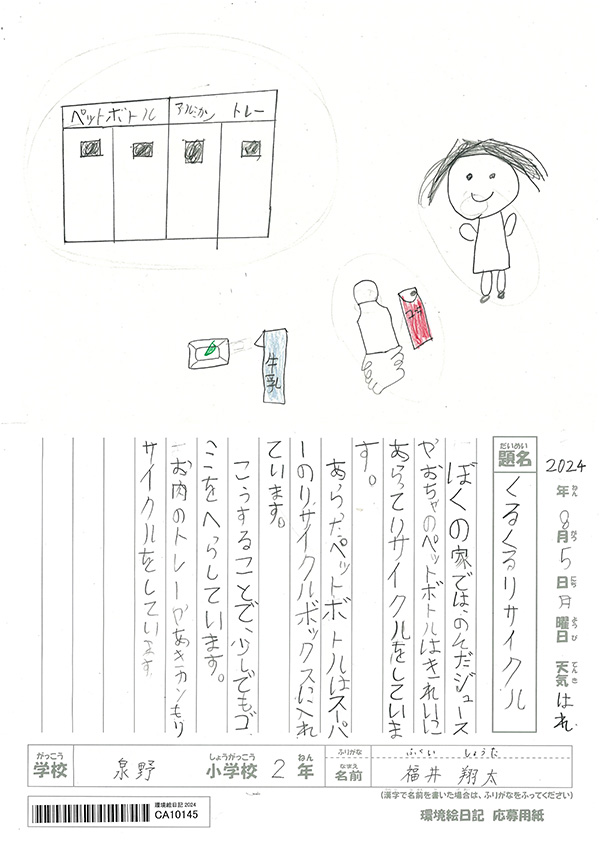 ペットボトル
アルミかん
トレー
コーラ
牛乳
2024年ねん 8月がつ 5日にち 月曜日ようび 天気てんき はれ
だいめい
題名
くるくるリサイクル
ぼくの家では、のんだジュース
やおちゃのペットボトルはきれいに
あらってリサイクルをしていま
す。
あらったペットボトルはスーパ
ーのリサイクルボックスに入れ
ています。
こうすることで、少しでもゴ
ミをへらしています。
お肉のトレーやあきカンもリ
サイクルをしています。
がっこう
学校
泉野
しょうがっこう
小学校
2
ねん
年
ふりがな
ふくい しょうた
なまえ
名前
福井 翔太
(漢字で名前を書いた場合は、ふりがなをふってください)
環境絵日記 2024
CA10145
環境絵日記 応募用紙